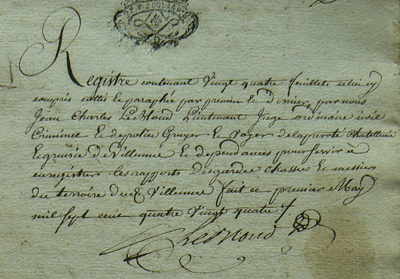 Registre contenant vingt quatre feuillets celui cy
compris cottés et paraphé par premier et dernier par nous
Jean Charles Le Blond Lieutenant Juge ordinaire civil
Criminel et de police Gruyer et Voyer de la prevoté Chatellenie
et gruerie de Villenne et dependances pour servir a
enregistrer les rapports des gardes chasse et messiers
du terroire dud Villenne fait ce premier May
mil sept cent quatre vingt quatre /.
LeBlond